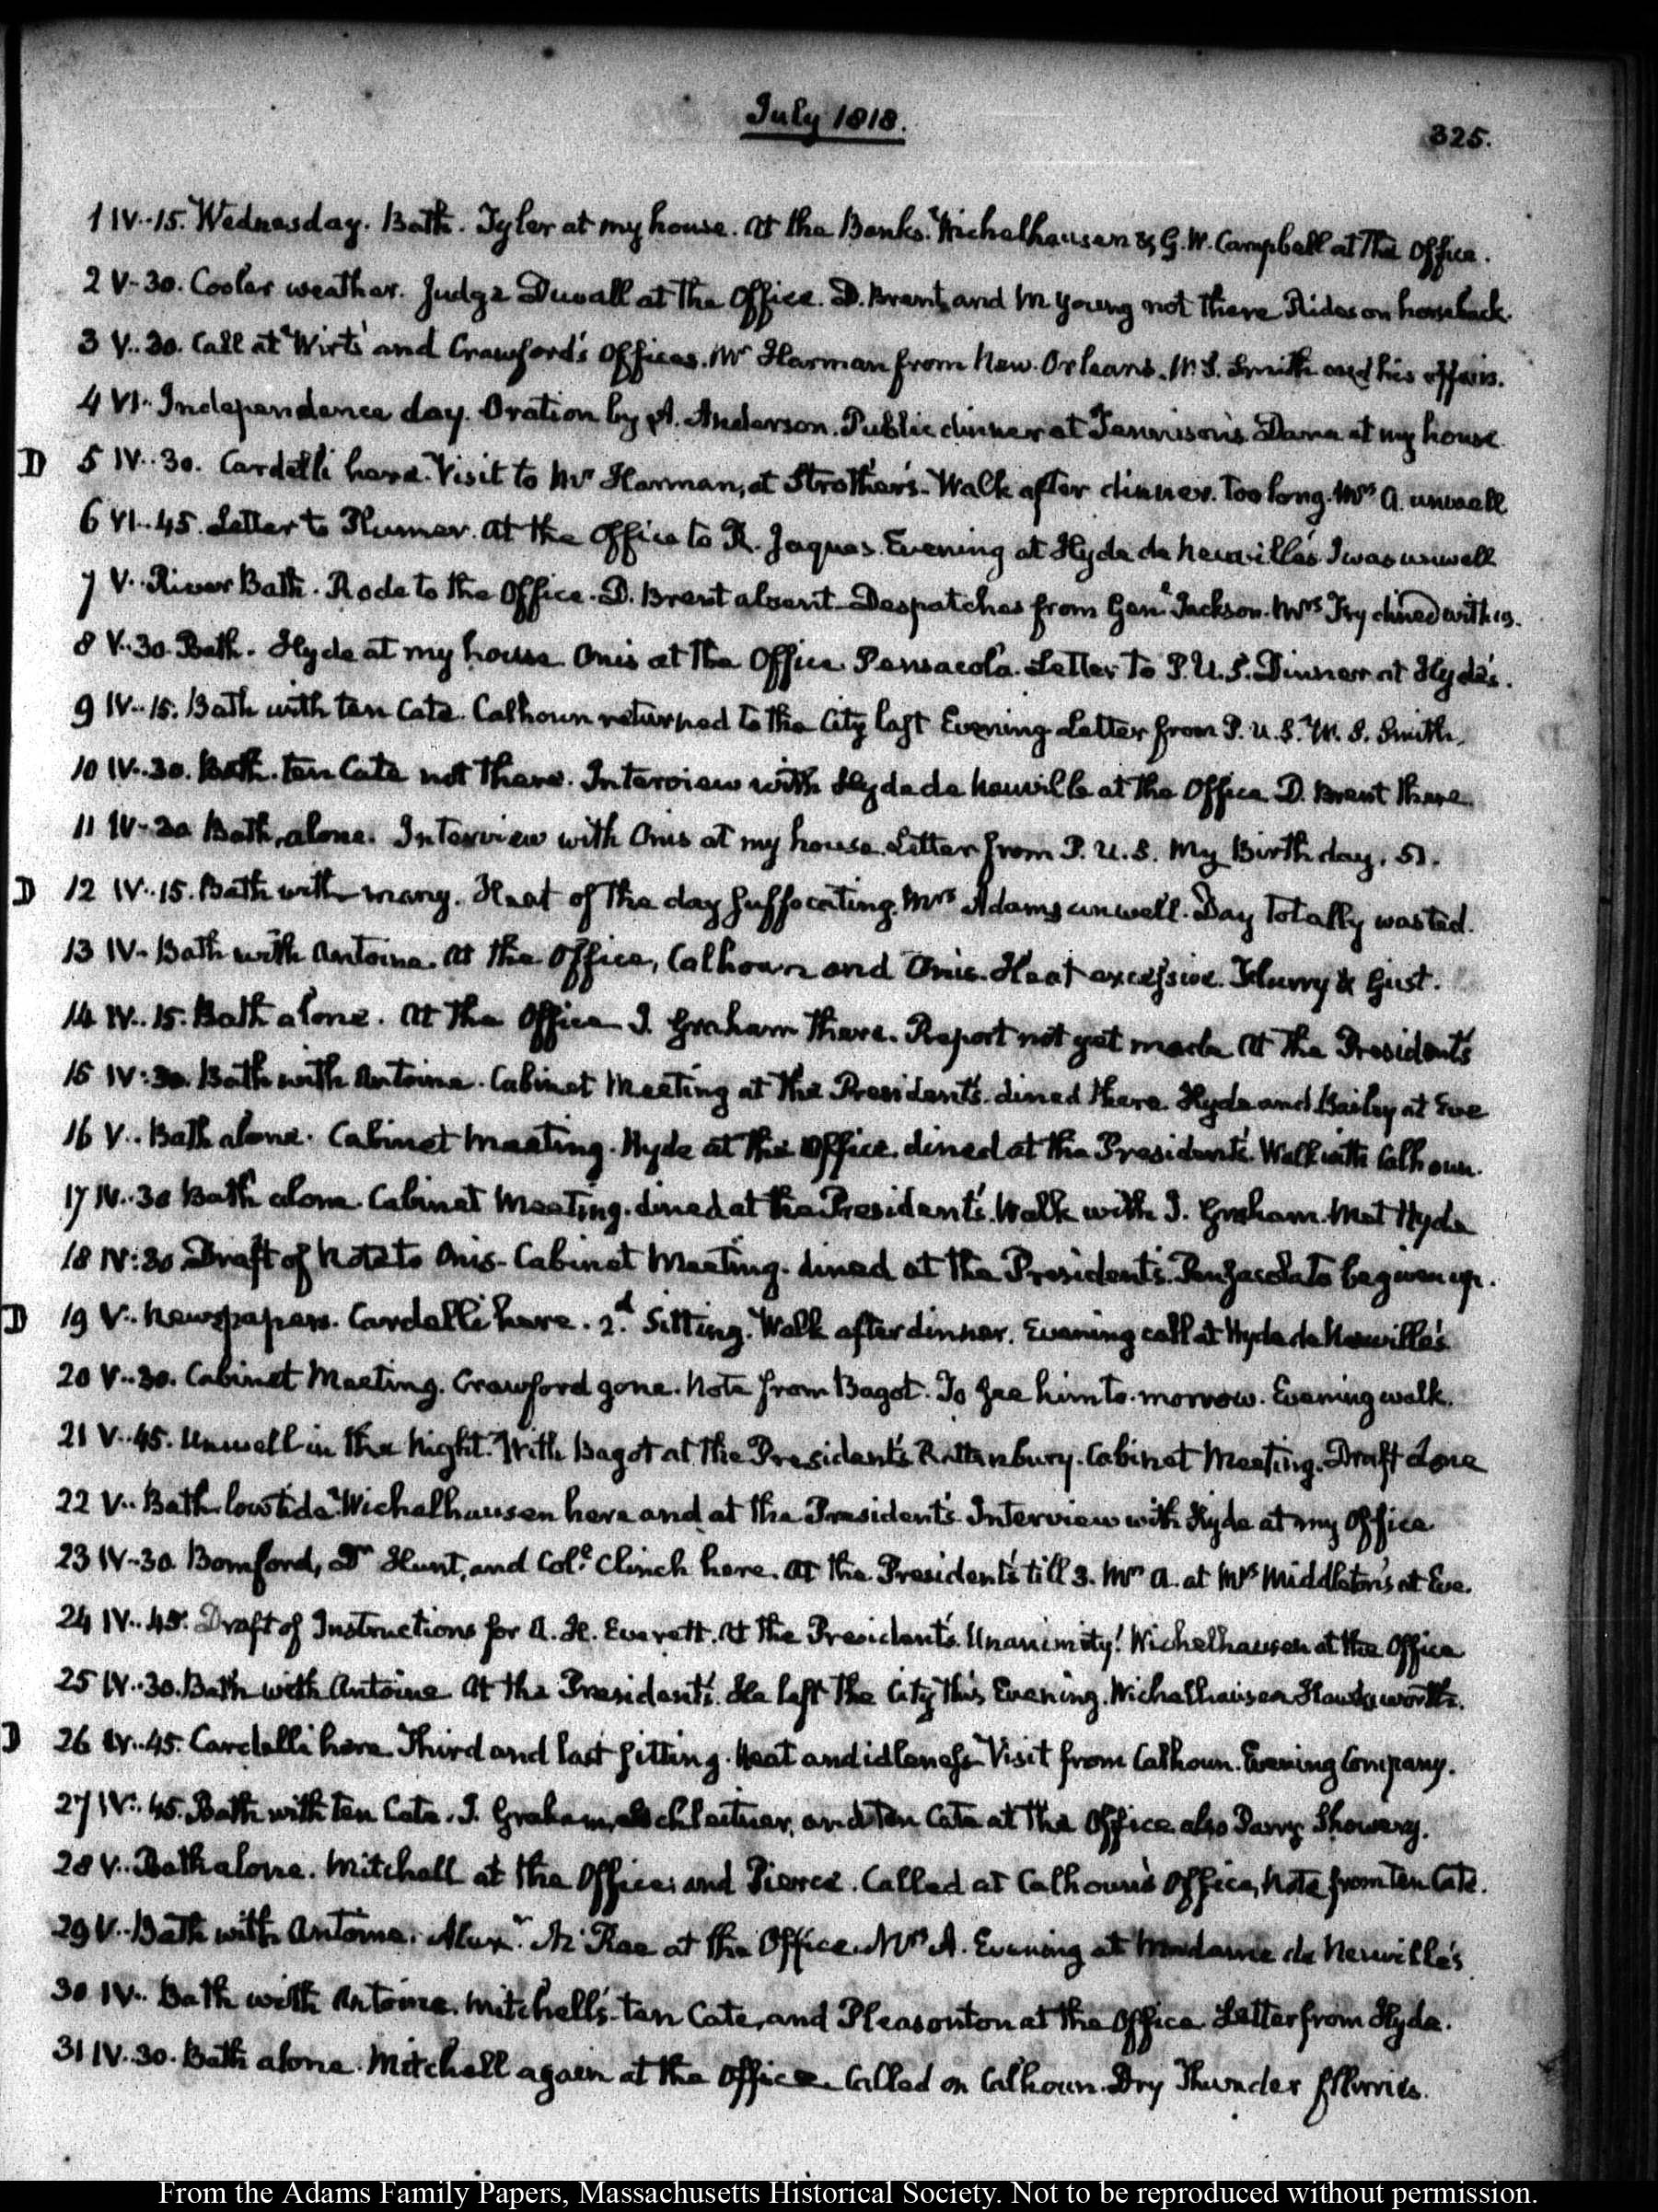 July 1818.
325.
1 IV..15. Wednesday. Bath. Tyler at my house. At the Banks. Wichelhausen & G. W. Campbell at the Office.
2 V-30. Cooler weather. Judge Duvall at the Office. D. Brent, and M Young not there. Rides on horseback.
3 V..30. Call at Wirt's and Crawford's Offices. Mr Harman from New-Orleans. W. S. Smith and his affairs.
4 VI. Independence day. Oration by A. Anderson. Public dinner at Tennison's. Dana at my house.
D 5 IV..30. Cardelli here. Visit to Mr Harman, at Strother's. Walk after dinner. Too long. Mrs A. unwell
6 VI..45. Letter to Plumer. At the Office to R. Jaques. Evening at Hyde de Neuville's. I was unwell
7 V.. River Bath. Rode to the Office. D. Brent absent. Despatches from Genl Jackson. Mrs Fry dined with us.
8 V..30. Bath. Hyde at my house. Onis at the Office. Pensacola. Letter to P. U. S. Dinner at Hyde's.
9 IV..15. Bath with ten Cate. Calhoun returned to the City last Evening. Letter from P. U. S. W. S. Smith.
10 IV..30. Bath. ten Cate not there. Interview with Hyde de Neuville at the Office. D. Brent there.
11 IV-30. Bath, alone. Interview with Onis at my house. Letter from P. U. S. My Birth day, 51.
D 12 IV..15. Bath with many. Heat of the day suffocating. Mrs Adams unwell. Day totally wasted.
13 IV- Bath with Antoine. At the Office, Calhoun and Onis. Heat excessive. Flurry & Gust.
14 IV..15. Bath alone. At the Office J. Graham there. Report not yet made. At the President's
15 IV:30. Bath with Antoine. Cabinet Meeting at the President's. dined there. Hyde and Bailey at Eve
16 V.. Bath alone. Cabinet Meeting. Hyde at the Office. dined at the President's. Walk with Calhoun.
17 IV..30 Bath alone. Cabinet Meeting. dined at the President's. Walk with J. Graham. Met Hyde
18 IV:30. Draft of Note to Onis. Cabinet Meeting. dined at the President's. Penzacola to be given up.
D 19 V.. Newspapers. Cardelli here. 2d Sitting. Walk after dinner. Evening call at Hyde de Neuville's
20 V..30. Cabinet Meeting. Crawford gone. Note from Bagot. To see him to-morrow. Evening walk.
21 V..45. Unwell in the Night. With Bagot at the President's. Rattenbury. Cabinet Meeting. Draft done
22 V.. Bath. low tide. Wichelhausen here and at the President's. Interview with Hyde at my Office
23 IV-30. Bomford, Dr Hunt, and Coll Clinch here. At the President's till 3. Mrs A. at Mrs Middleton's at Eve.
24 IV..45. Draft of Instructions for A. H. Everett. At the President's. Unanimity! Wichelhausen at the Office
25 IV..30. Bath with Antoine. At the President's. He left the City this Evening. Wichelhausen
D 26 IV..45. Cardelli here. Third and last sitting. Heat and idleness. Visit from Calhoun. Evening Company.
27 IV..45. Bath with ten Cate. J. Graham, and ten Cate at the Office. also Parry. Showery.
28 V.. Bath alone. Mitchell at the Office; and Pierce. Called at Calhoun's Office, Note from Ten Cate.
29 V.. Bath with Antoine. Alexr. McRae at the Office. Mrs A. Evening at Madame de Neuville's
30 IV.. Bath with Antoine. Mitchell's. ten Cate, and Pleasonton at the Office. Letter from Hyde.
31 IV..30. Bath alone. Mitchell again at the Office. Called on Calhoun. Dry Thunder flurries.
From the Adams Family Papers, Massachusetts Historical Society. Not to be reproduced without permission.